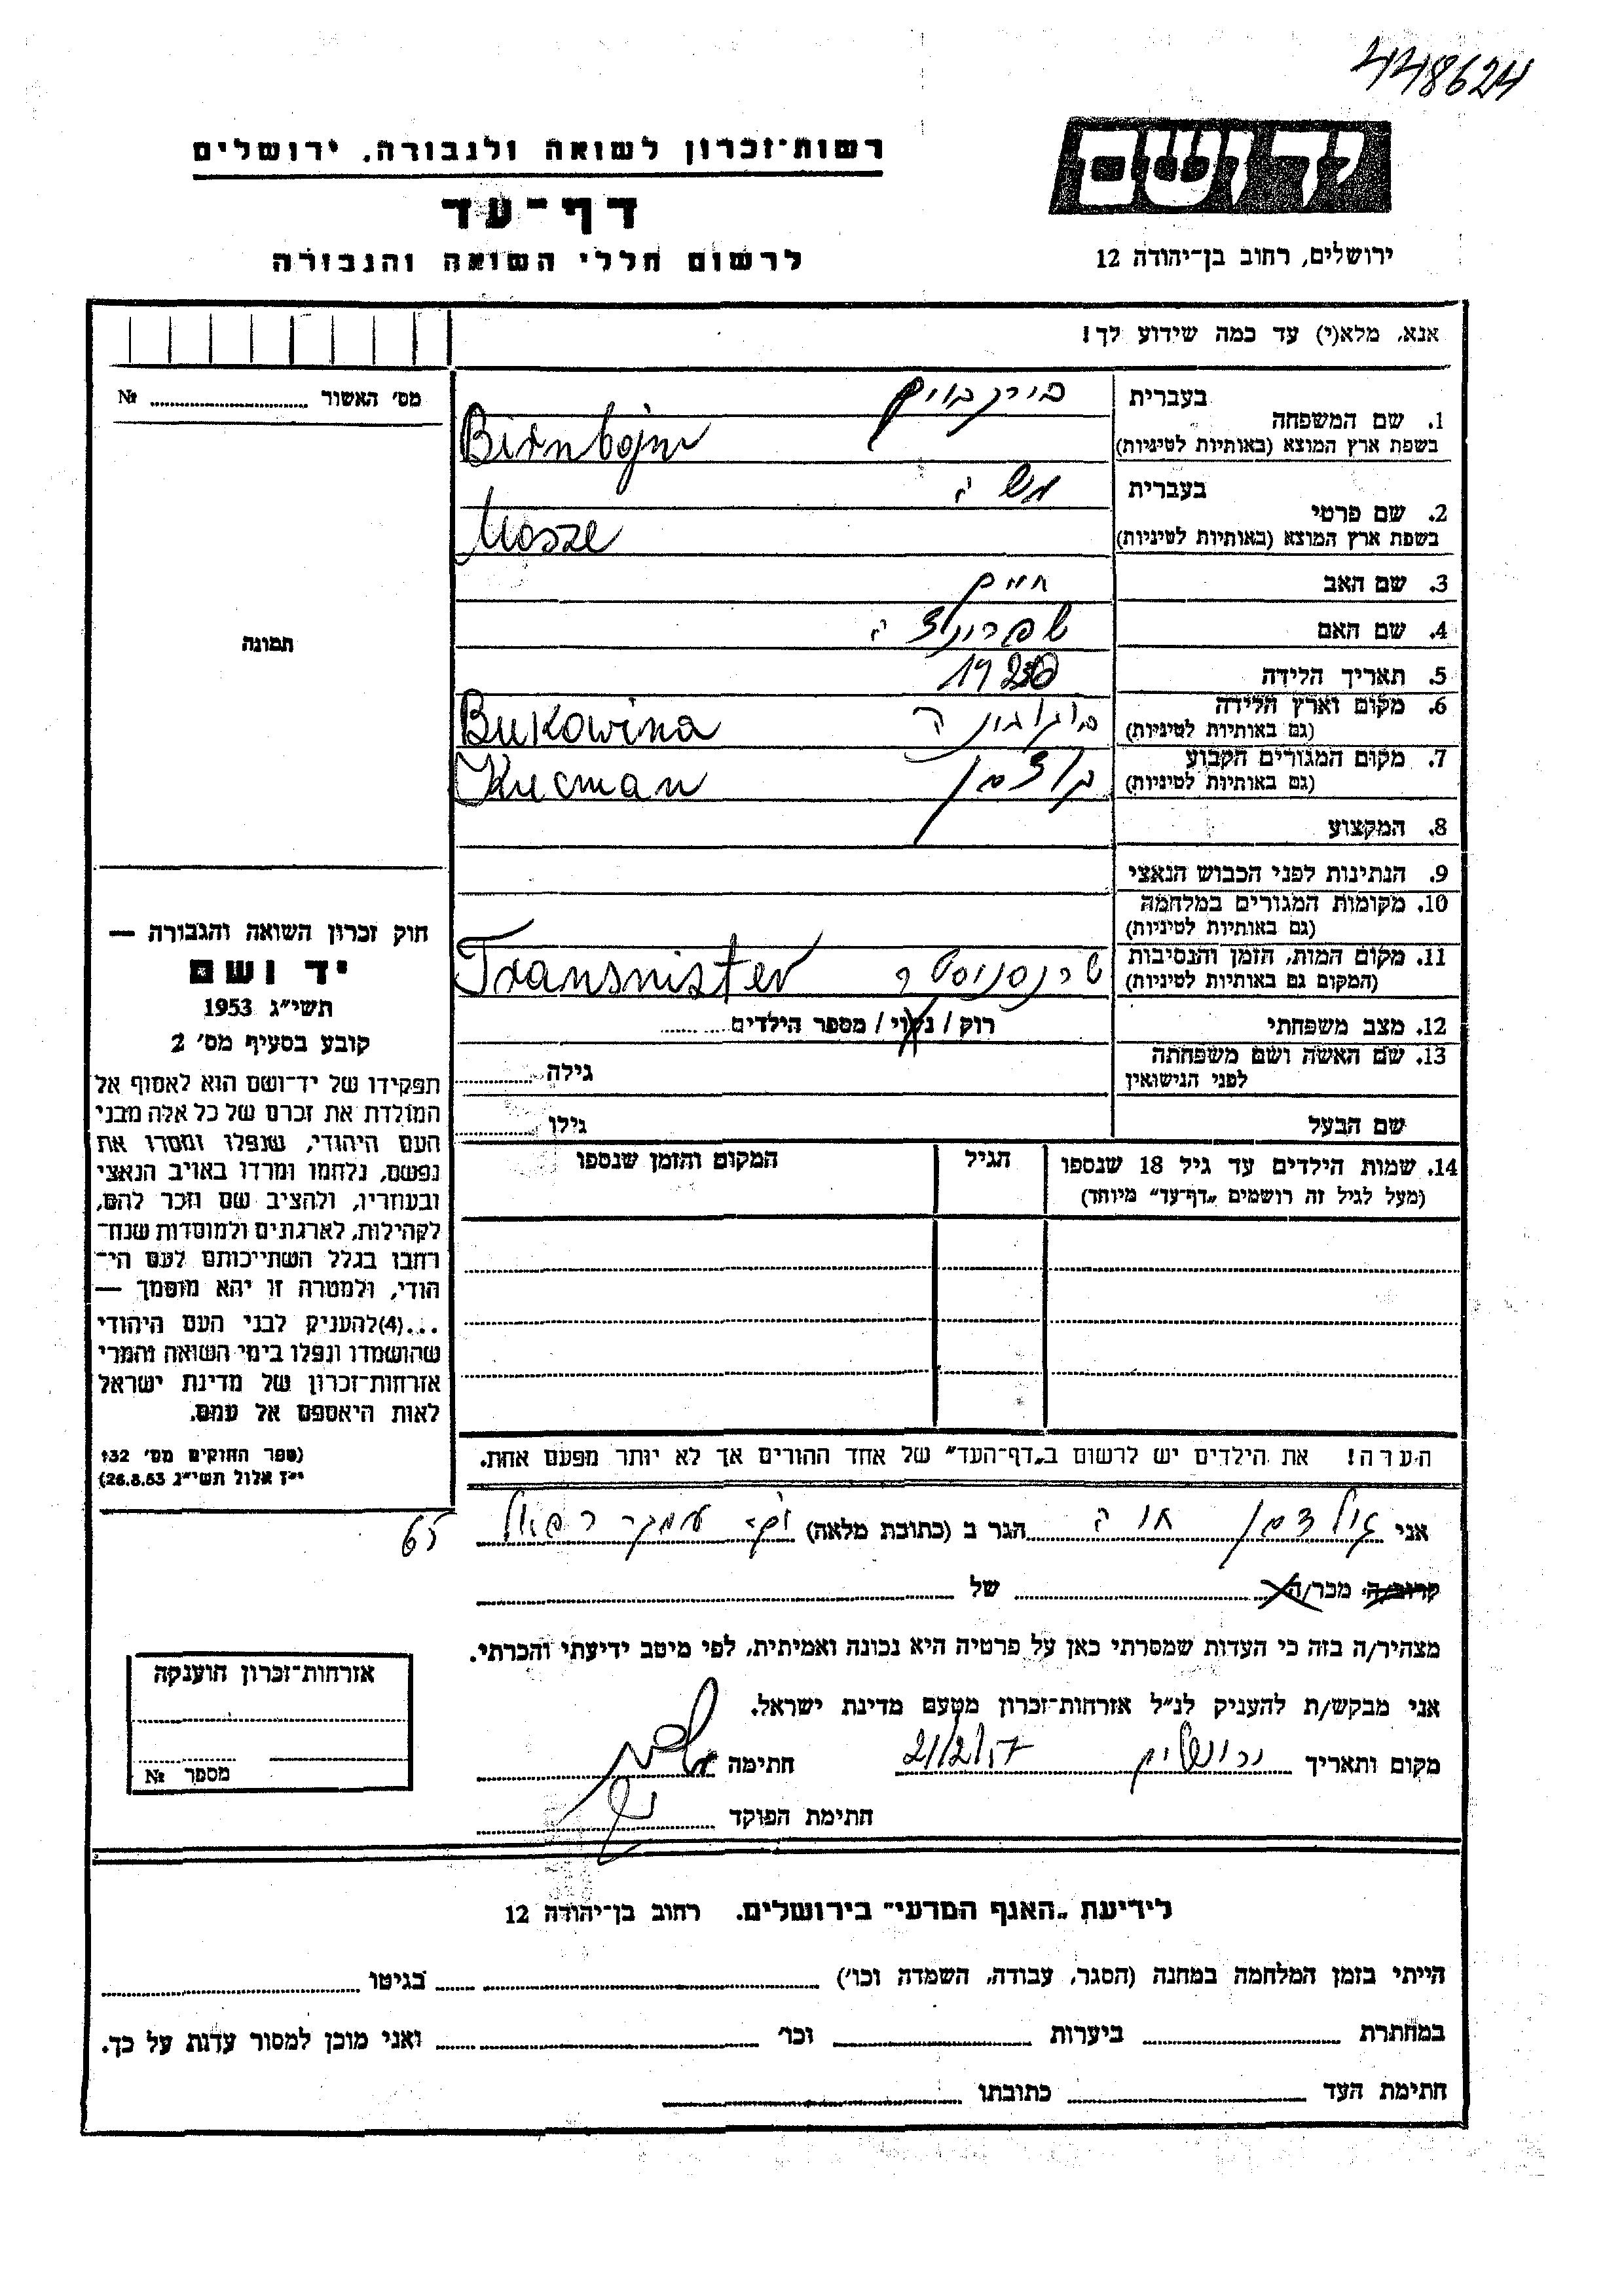 448624
יד ושם
רשות־זכרון לשואה ולגבורה, ירושלים
דף־עד
לרשום חללי השואה והגבורה
ירושלים, רחוב בן־יהודה 12
אנא, מלא(י) עד כמה שידוע לך!
מס' האשור № 
תמונה
חוק זכרון השואה והגבורה —
יד ושם
תשי״ג 1953
קובע בסעיף מס׳ 2
תפקידו של יד־ושם הוא לאסוף אל
המולדת את זכרם של כל אלה מבני
העם היהודי, שנפלו ומסרו את
נפשם, נלחמו ומרדו באויב הנאצי
ובעוזריו, ולהציב שם וזכר להם,
לקהילות, לארגונים ולמוסדות שנח־
רבו בגלל השתייכותם לעם הי־
הודי, ולמטרה זו יהא מוסמך —
...(4)להעניק לבני העם היהודי
שהושמדו ונפלו בימי השואה והמרי
אזרחות־זכרון של מדינת ישראל
לאות היאספם אל עמם.
(ספר החוקים מס׳ 132
י״ז אלול תשי״ג 26.8.53)
1. שם המשפחה
בעברית בירנבוים
בשפת ארץ המוצא (באותיות לטיניות) Birnbojm
2. שם פרטי
בעברית משה
בשפת ארץ המוצא (באותיות לטיניות) Mosze
3. שם האב חיים
4. שם האם שפרינצה
5. תאריך הלידה
6. מקום וארץ הלידה בוקובינה Bukowina
(גם באותיות לטיניות)
7. מקום המגורים הקבוע קוצמן Kucman
(גם באותיות לטיניות)
8. המקצוע
9. הנתינות לפני הכבוש הנאצי
10. מקומות המגורים במלחמה
(גם באותיות לטיניות)
11. מקום המות, הזמן והנסיבות טרנסניסטר Transnister
(המקום גם באותיות לטיניות)
12. מצב משפחתי רוק / נשוי / מספר הילדים
13. שם האשה ושם משפחתה
לפני הנישואין גילה
שם הבעל גילו
14. שמות הילדים עד גיל 18 שנספו הגיל המקום והזמן שנספו
(מעל לגיל זה רושמים „דף־עד״ מיוחד)
הערה! את הילדים יש לרשום ב„דף־העד״ של אחד ההורים אך לא יותר מפעם אחת.
אני חוה הגר ב (כתובת מלאה) 65
קרוב/ה מכר/ה של
מצהיר/ה בזה כי העדות שמסרתי כאן על פרטיה היא נכונה ואמיתית, לפי מיטב ידיעתי והכרתי.
אני מבקש/ת להעניק לנ״ל אזרחות־זכרון מטעם מדינת ישראל.
מקום ותאריך ירושלים 21/2/57 חתימה
חתימת הפוקד
אזרחות־זכרון הוענקה
מספר №
לידיעת „האגף המדעי״ בירושלים. רחוב בן־יהודה 12
הייתי בזמן המלחמה במחנה (הסגר, עבודה, השמדה וכו׳) בגיטו
במחתרת ביערות וכו׳ ואני מוכן למסור עדות על כך.
חתימת העד כתובתו